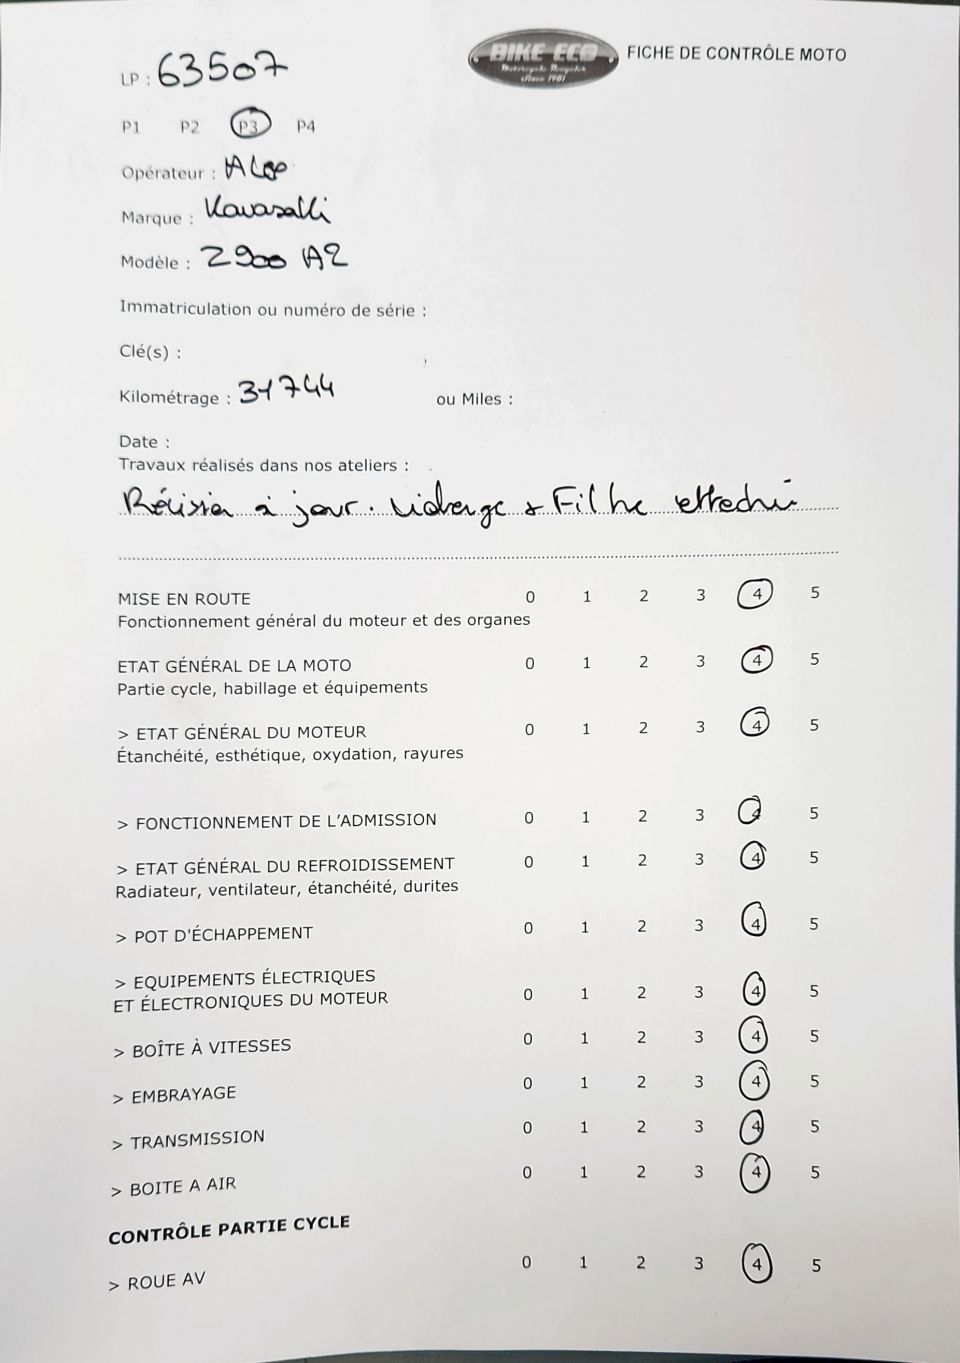 BIKE ECO
Motorcycle Recycler
since 1981
FICHE DE CONTRÔLE MOTO
LP : 63507
P1 P2 P3 P4
Opérateur :
Marque : Kawasaki
Modèle : Z900 A2
Immatriculation ou numéro de série :
Clé(s) :
Kilométrage : 31744 ou Miles :
Date :
Travaux réalisés dans nos ateliers :
Révision à jour. Vidange + Filtre effectué
MISE EN ROUTE 0 1 2 3 4 5
Fonctionnement général du moteur et des organes
ETAT GÉNÉRAL DE LA MOTO 0 1 2 3 4 5
Partie cycle, habillage et équipements
> ETAT GÉNÉRAL DU MOTEUR 0 1 2 3 4 5
Étanchéité, esthétique, oxydation, rayures
> FONCTIONNEMENT DE L'ADMISSION 0 1 2 3 4 5
> ETAT GÉNÉRAL DU REFROIDISSEMENT 0 1 2 3 4 5
Radiateur, ventilateur, étanchéité, durites
> POT D'ÉCHAPPEMENT 0 1 2 3 4 5
> EQUIPEMENTS ÉLECTRIQUES
ET ÉLECTRONIQUES DU MOTEUR 0 1 2 3 4 5
> BOÎTE À VITESSES 0 1 2 3 4 5
> EMBRAYAGE 0 1 2 3 4 5
> TRANSMISSION 0 1 2 3 4 5
> BOITE A AIR 0 1 2 3 4 5
CONTRÔLE PARTIE CYCLE
> ROUE AV 0 1 2 3 4 5